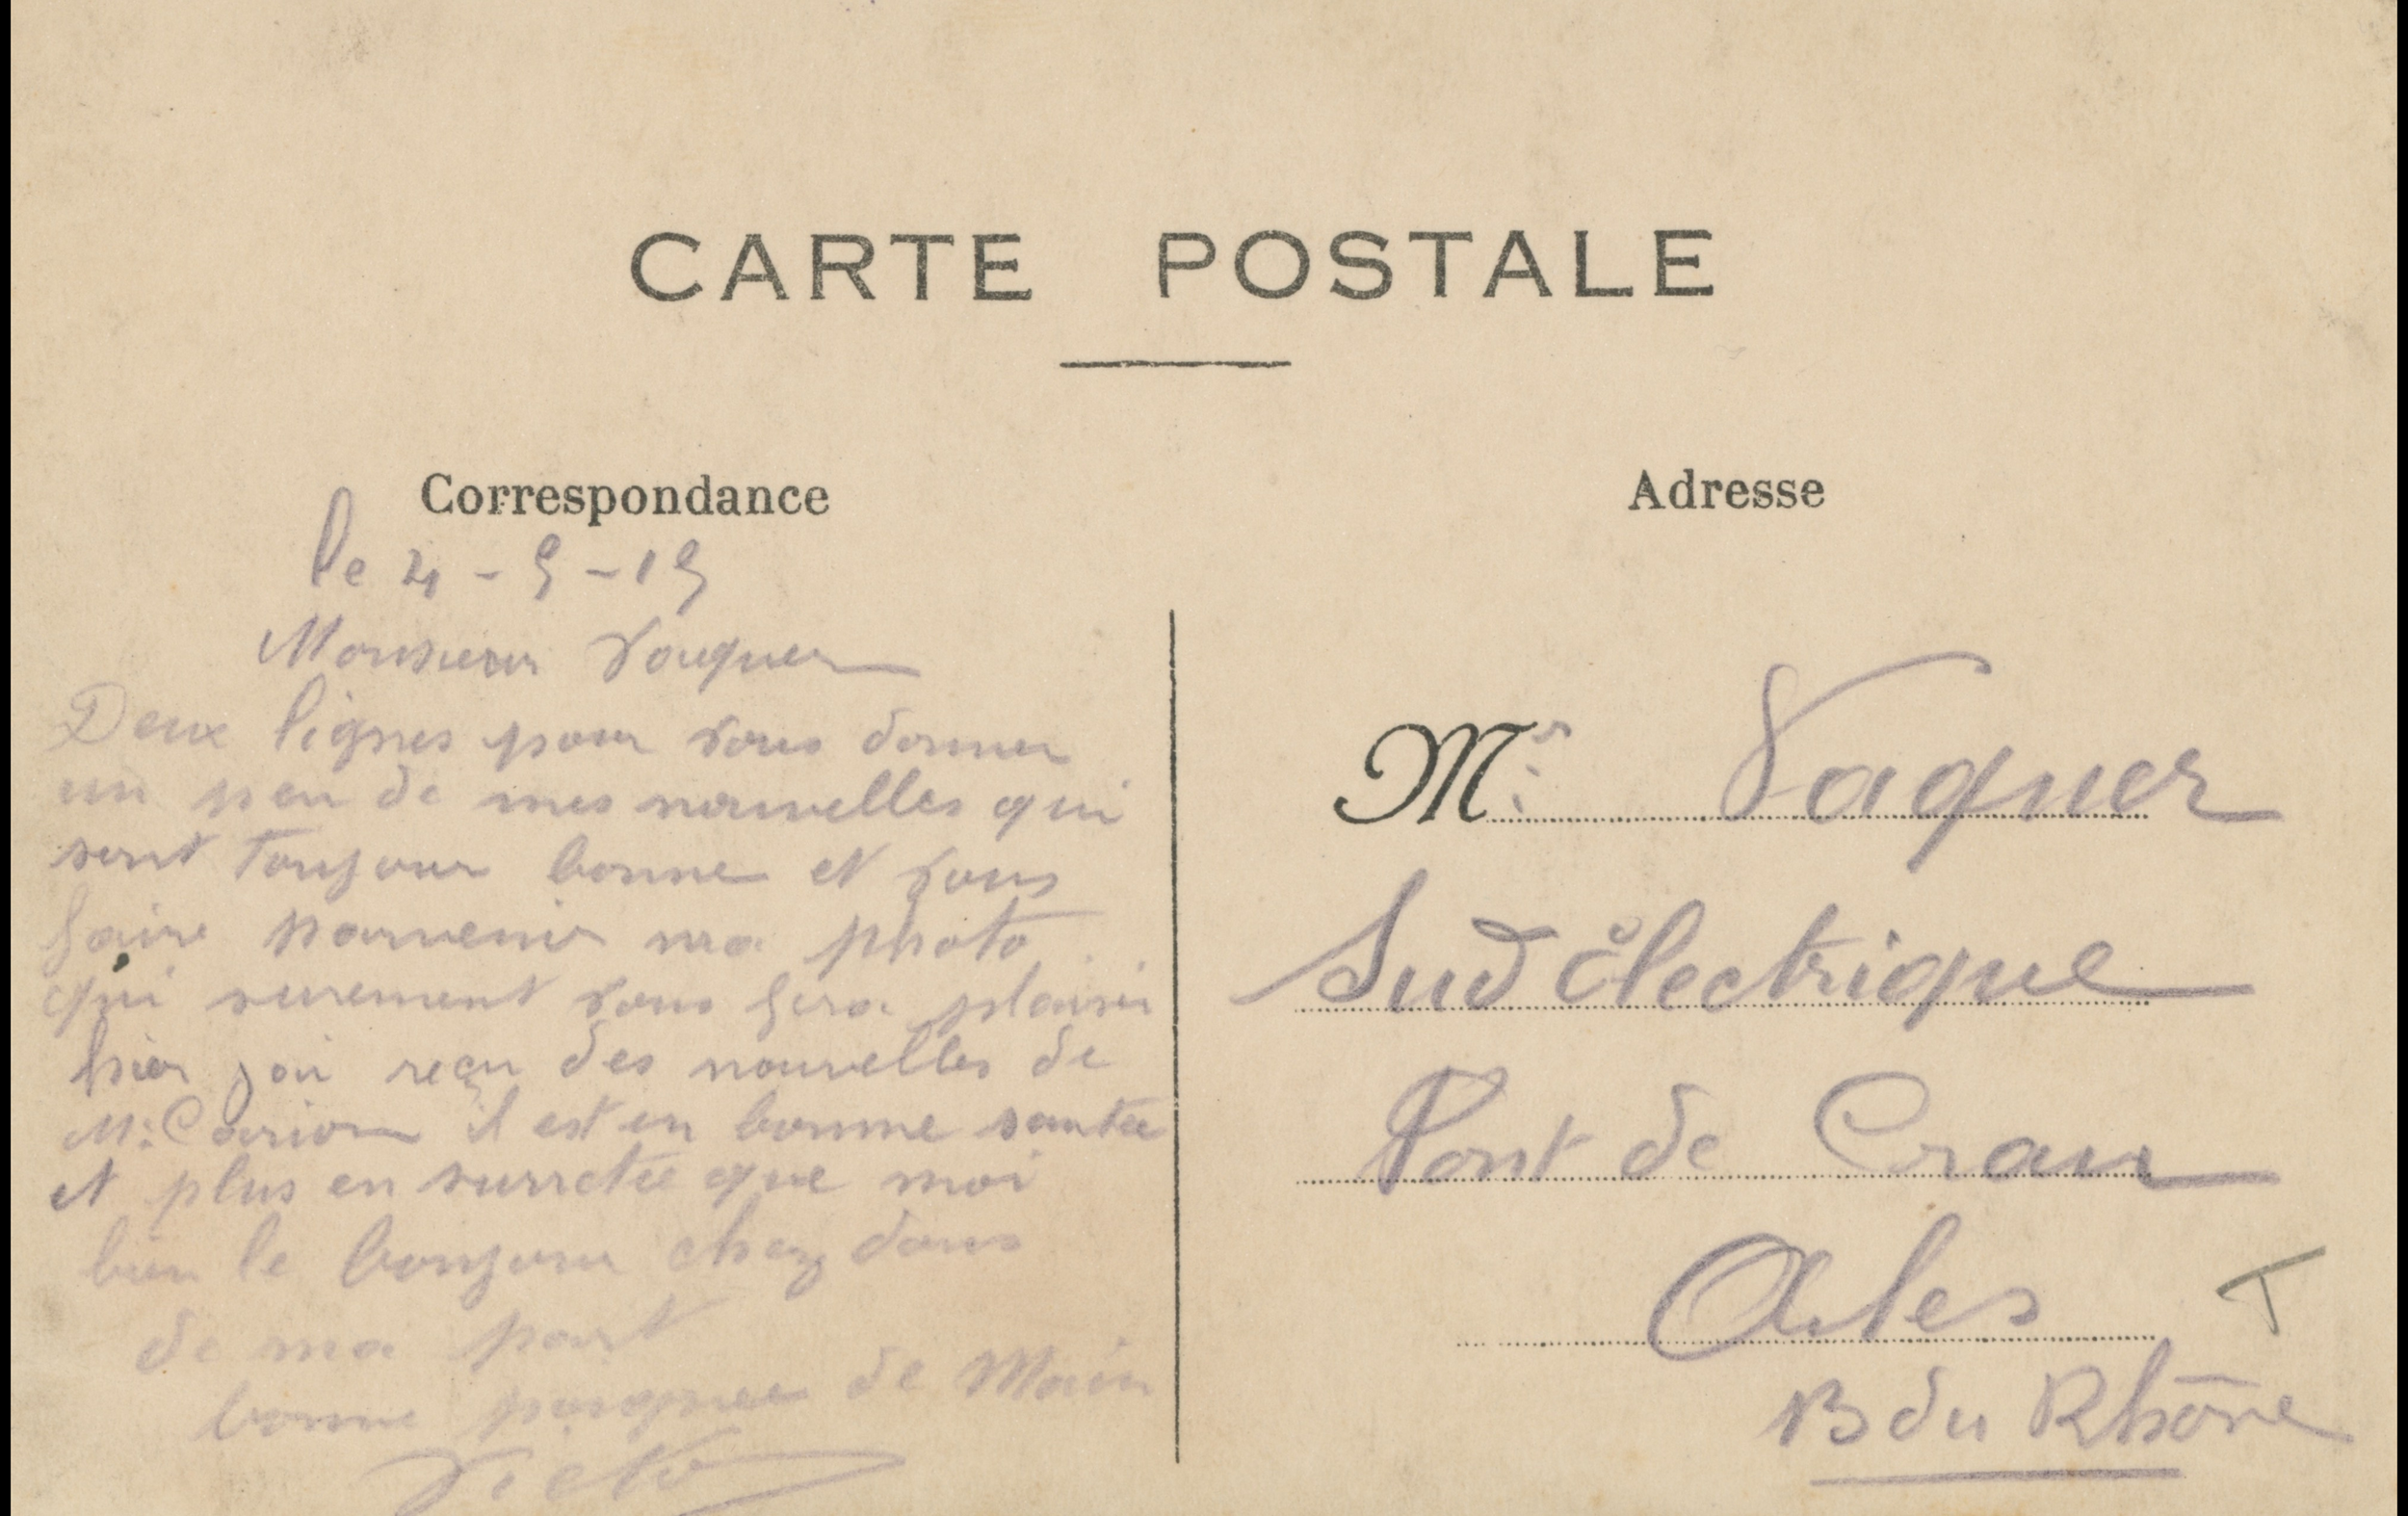 CARTE POSTALE
Correspondance
le 4-5-15
Monsieur Vaquer
Deux lignes pour vous donner
un peu de mes nouvelles qui
sont toujour bonne et vous
faire parvenir ma photo
qui surement vous fera plaisir
hier j ai reçu des nouvelles de
M. Carion il est en bonne santée
et plus en surretée que moi
bien le bonjour chez
de ma part
bonne poignee de Main
Victo
Adresse
Mr: Vaquer
Sud Électrique
Pont de Crau
Arles
B du Rhône
T